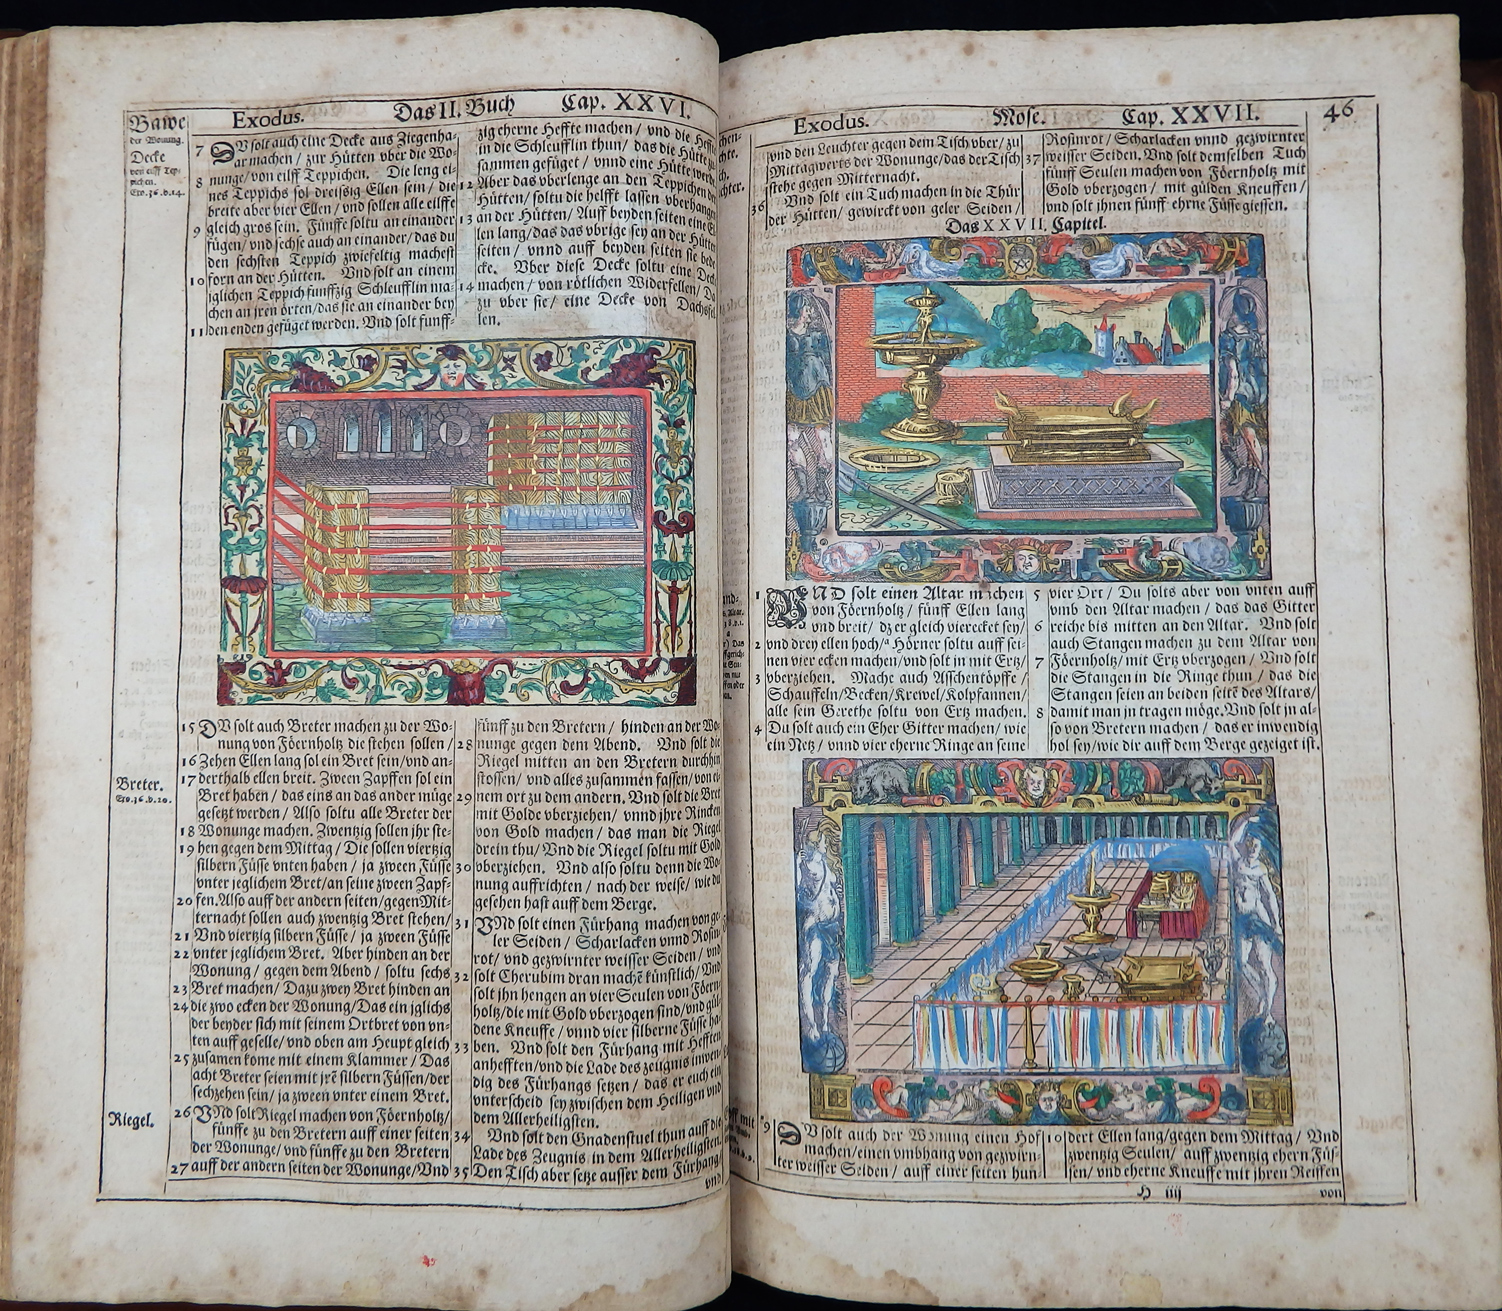 Exodus. Das II. Buch Cap. XXVI.
Bawe
der Wonung.
Decke
von eilff Tep-
pichen.
Exo.36.v.14.
7 DV solt auch eine Decke aus Ziegenha-
ar machen / zur Hütten vber die Wo-
8 nunge / von eilff Teppichen. Die leng ei-
nes Teppichs sol dreissig Ellen sein / die
breite aber vier Ellen / vnd sollen alle eilffe
9 gleich gros sein. Fünffe soltu an einander
fügen / vnd sechse auch an einander / das du
den sechsten Teppich zwiefeltig machest
10 forn an der Hütten. Vnd solt an einem
jglichen Teppich funffzig Schleufflin ma-
chen an jren örten / das sie an einander bey
11 den enden gefüget werden. Vnd solt funff-
zig eherne Heffte machen / vnd die Heffte
in die Schleufflin thun / das die Hütte zu-
sammen gefüget / vnnd eine Hütte werde.
12 Aber das vberlenge an den Teppichen der
Hütten / soltu die helfft lassen vberhangen
13 an der Hütten / Auff beyden seiten eine El-
len lang / das das vbrige sey an der Hütten
seiten / vnnd auff beyden seiten sie bede-
cke. Vber diese Decke soltu eine Decke
14 machen / von rötlichen Widerfellen / Da
zu vber sie / eine Decke von Dachsfel-
len.
15 DV solt auch Breter machen zu der Wo-
nung von Föernholtz die stehen sollen /
16 Zehen Ellen lang sol ein Bret sein / vnd an-
17 derthalb ellen breit. Zween Zapffen sol ein
Bret haben / das eins an das ander müge
gesetzt werden / Also soltu alle Breter der
18 Wonunge machen. Zwentzig sollen jhr ste-
19 hen gegen dem Mittag / Die sollen viertzig
silbern Füsse vnten haben / ja zween Füsse
vnter jeglichem Bret / an seine zween Zapf-
20 fen. Also auff der andern seiten / gegen Mit-
ternacht sollen auch zwentzig Bret stehen /
21 Vnd viertzig silbern Füsse / ja zween Füsse
22 vnter jeglichem Bret. Aber hinden an der
Wonung / gegen dem Abend / soltu sechs
23 Bret machen / Dazu zwey Bret hinden an
24 die zwo ecken der Wonung / Das ein jglichs
der beyder sich mit seinem Ortbret von vn-
ten auff geselle / vnd oben am Heupt gleich
25 zusamen kome mit einem Klammer / Das
acht Breter seien mit jrē silbern Füssen / der
sechzehen sein / ja zween vnter einem Bret.
26 VNd solt Riegel machen von Föernholtz /
fünffe zu den Bretern auff einer seiten
der Wonunge / vnd fünffe zu den Bretern
27 auff der andern seiten der Wonunge / Vnd
Breter.
Exo.36.v.20.
Riegel.
fünff zu den Bretern / hinden an der Wo-
28 nunge gegen dem Abend. Vnd solt die
Riegel mitten an den Bretern durchhin
stossen / vnd alles zusammen fassen / von ei-
29 nem ort zu dem andern. Vnd solt die Bret
mit Golde vberziehen / vnnd jhre Rincken
von Gold machen / das man die Riegel
drein thu / Vnd die Riegel soltu mit Gold
30 vberziehen. Vnd also soltu denn die Wo-
nung auffrichten / nach der weise / wie du
gesehen hast auff dem Berge.
31 VNd solt einen Fürhang machen von ge-
ler Seiden / Scharlacken vnnd Rosin-
rot / vnd gezwirnter weisser Seiden / vnd
32 solt Cherubim dran machē künstlich / Vnd
solt jhn hengen an vier Seulen von Föern-
holtz / die mit Gold vberzogen sind / vnd gül-
dene Kneuffe / vnnd vier silberne Füsse ha-
33 ben. Vnd solt den Fürhang mit Hefften
anhefften / vnd die Lade des zeugnis inwen-
dig des Fürhangs setzen / das er euch ein
vnterscheid sey zwischen dem Heiligen vnd
dem Allerheiligsten.
34 Vnd solt den Gnadenstuel thun auff die
Lade des Zeugnis in dem Allerheiligsten.
35 Den Tisch aber setze ausser dem Fürhang
vnd
Exodus. Mose. Cap. XXVII. 46
vnd den Leuchter gegen dem Tisch vber / zu
Mittagwerts der Wonunge / das der Tisch
stehe gegen Mitternacht.
36 Vnd solt ein Tuch machen in die Thür
der Hütten / gewirckt von geler Seiden /
Rosinrot / Scharlacken vnnd gezwirnter
37 weisser Seiden. Vnd solt demselben Tuch
fünff Seulen machen von Föernholtz mit
Gold vberzogen / mit gülden Kneuffen /
vnd solt jhnen fünff ehrne Füsse giessen.
Das XXVII. Capitel.
1 VND solt einen Altar machen
von Föernholtz / fünff Ellen lang
vnd breit / dz er gleich vierecket sey /
2 vnd drey ellen hoch / Hörner soltu auff sei-
nen vier ecken machen / vnd solt in mit Ertz
3 vberziehen. Mache auch Asschentöpffe /
Schauffeln / Becken / Krewel / Kolpfannen /
alle sein Gerethe soltu von Ertz machen.
4 Du solt auch ein Eher Gitter machen / wie
ein Netz / vnnd vier eherne Ringe an seine
5 vier Ort / Du solts aber von vnten auff
vmb den Altar machen / das das Gitter
6 reiche bis mitten an den Altar. Vnd solt
auch Stangen machen zu dem Altar von
7 Föernholtz / mit Ertz vberzogen / Vnd solt
die Stangen in die Ringe thun / das die
Stangen seien an beiden seitē des Altars /
8 damit man jn tragen möge. Vnd solt jn al-
so von Bretern machen / das er inwendig
hol sey / wie dir auff dem Berge gezeiget ist.
9 DV solt auch der Wonung einen Hof
machen / einen vmbhang von gezwirn-
ter weisser Seiden / auff einer seiten hun-
10 dert Ellen lang / gegen dem Mittag / Vnd
zwentzig Seulen / auff zwentzig ehern Füs-
sen / vnd eherne Kneuffe mit jhren Reiffen
H iiij von